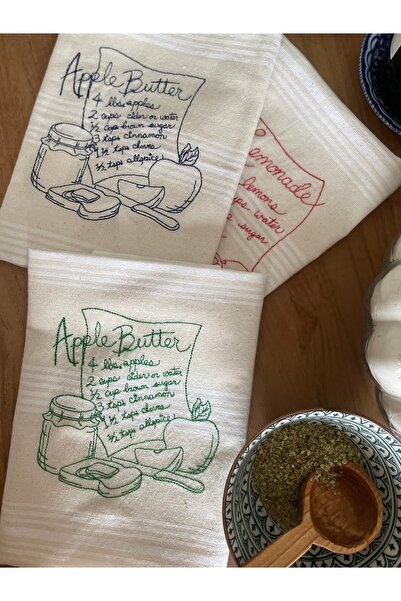 Apple Butter
4 lbs. apples
2 cups cider or water
½ cup brown sugar
3 tsps cinnamon
1½ tsps cloves
½ tsps allspice
emonade
lemons
ps water
sugar
Apple Butter
4 lbs. apples
2 cups cider or water
½ cup brown sugar
3 tsps cinnamon
1½ tsps cloves
½ tsps allspice